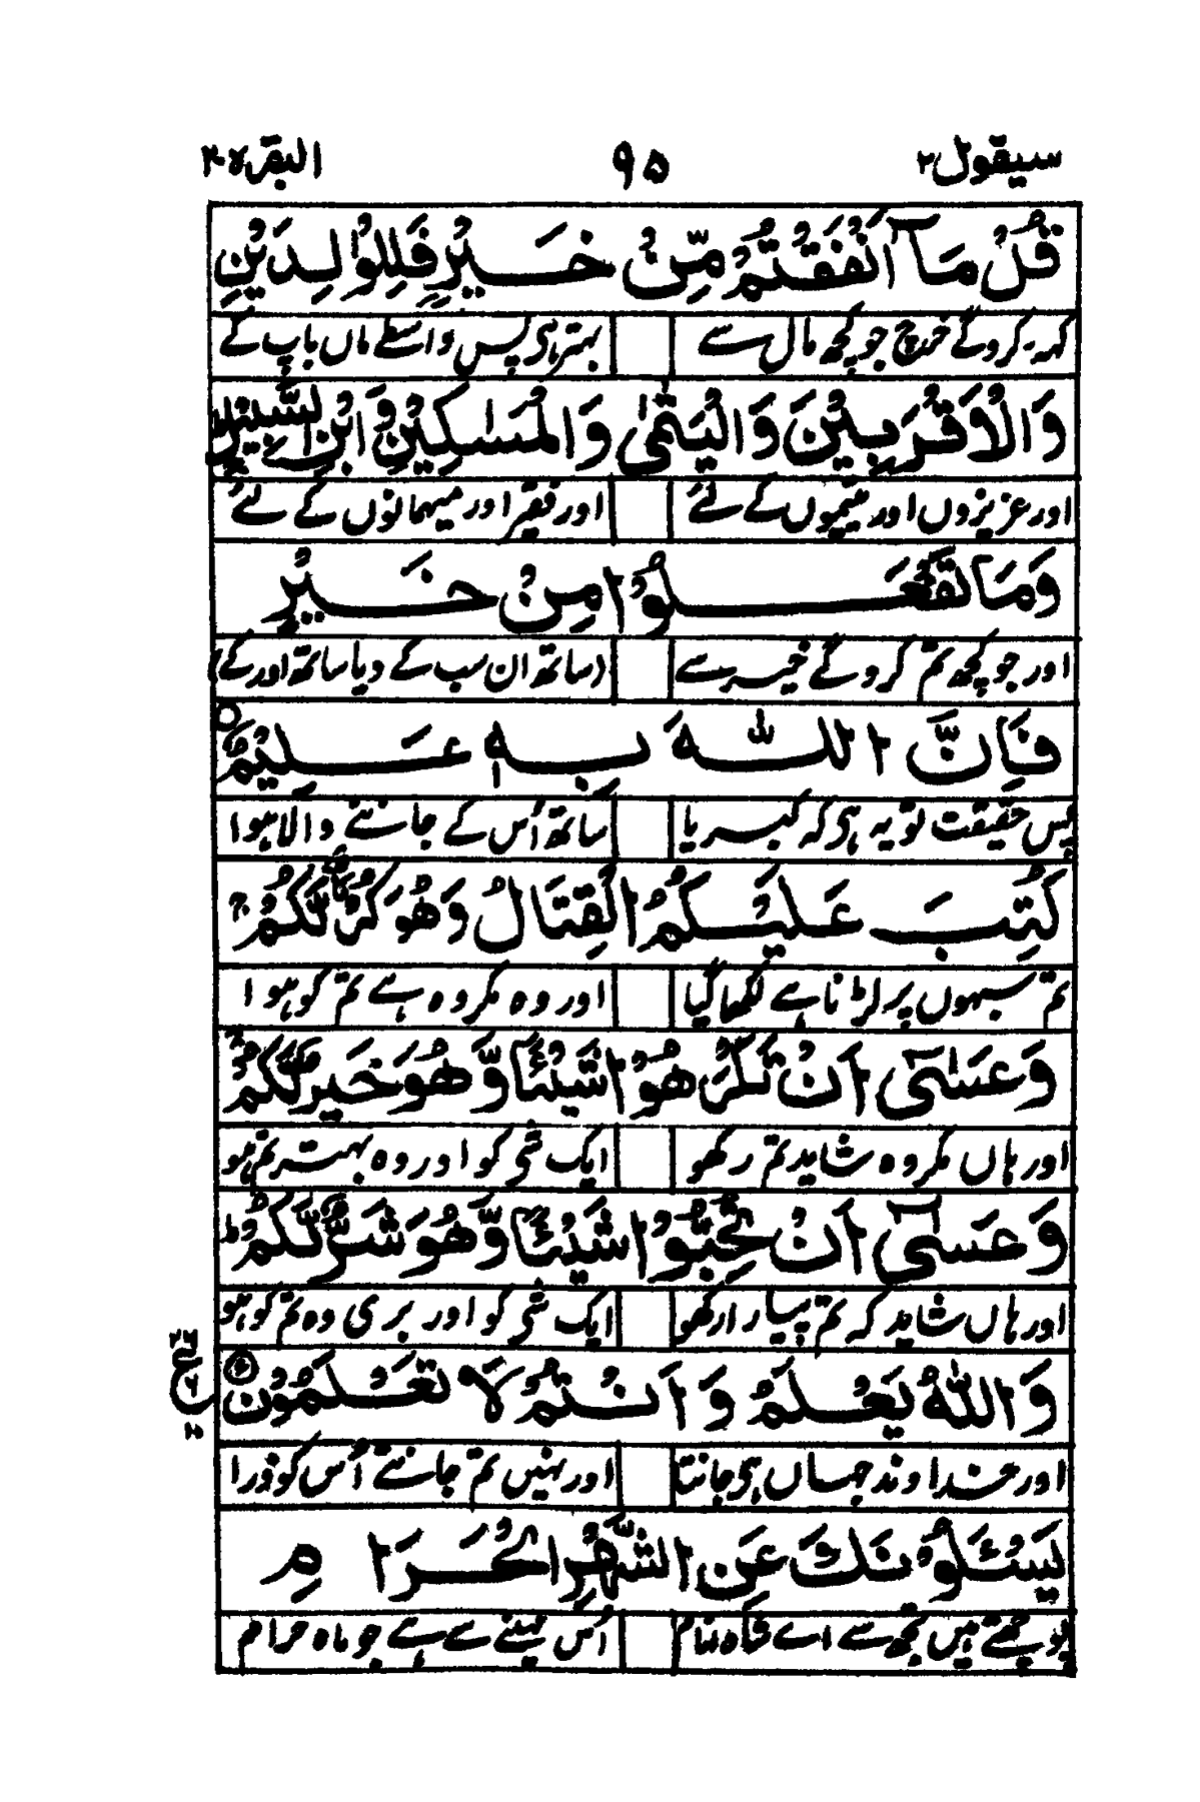 سیقول ۲ ۹۵ البقرہ ۲
قُلْ مَآ اَنْفَقْتُمْ مِّنْ خَيْرٍ فَلِلْوَالِدَيْنِ
کہہ۔ کروگے خرچ جو کچھ مال سے بہتر ہی پس واسطے ماں باپ کے
وَالْاَقْرَبِيْنَ وَالْيَتٰمٰى وَالْمَسٰكِيْنِ وَابْنِ السَّبِيْلِ
اور عزیزوں اور یتیموں کے لئے اور فقیر اور میہمانوں کے لئے
وَمَا تَفْعَلُوْا مِنْ خَيْرٍ
اور جو کچھ تم کروگے خیر سے (ساتھ ان سب کے دیا ساتھ اور کے)
فَاِنَّ اللّٰهَ بِهٖ عَلِيْمٌ
پس حقیقت تو یہ ہی کہ کبریا ساتھ اُس کے جاننے والا ہوا
كُتِبَ عَلَيْكُمُ الْقِتَالُ وَهُوَ كُرْهٌ لَّكُمْ ۚ
تم سبہوں پر لڑنا ہے لکھا گیا اور وہ مکروہ ہے تم کو ہوا
وَعَسٰٓى اَنْ تَكْرَهُوْا شَيْـًٔا وَّهُوَ خَيْرٌ لَّكُمْ ۚ
اور ہاں مکروہ شاید تم رکھو ایک شی کو اور وہ بہتر تم ہو
وَعَسٰٓى اَنْ تُحِبُّوْا شَيْـًٔا وَّهُوَ شَرٌّ لَّكُمْ ؕ
اور ہاں شاید کہ تم پیارا رکھو ایک شی کو اور بری وہ تم کو ہو
وَاللّٰهُ يَعْلَمُ وَاَنْتُمْ لَا تَعْلَمُوْنَ
اور خداوند جہاں ہی جانتا اور نہیں تم جانتے اُس کو ذرا
يَسْـَٔلُوْنَكَ عَنِ الشَّهْرِ الْحَرَامِ
پوچھتے ہیں تجھ سے اے شاہ انام اُس مہینے سے ہے جو ماہ حرام